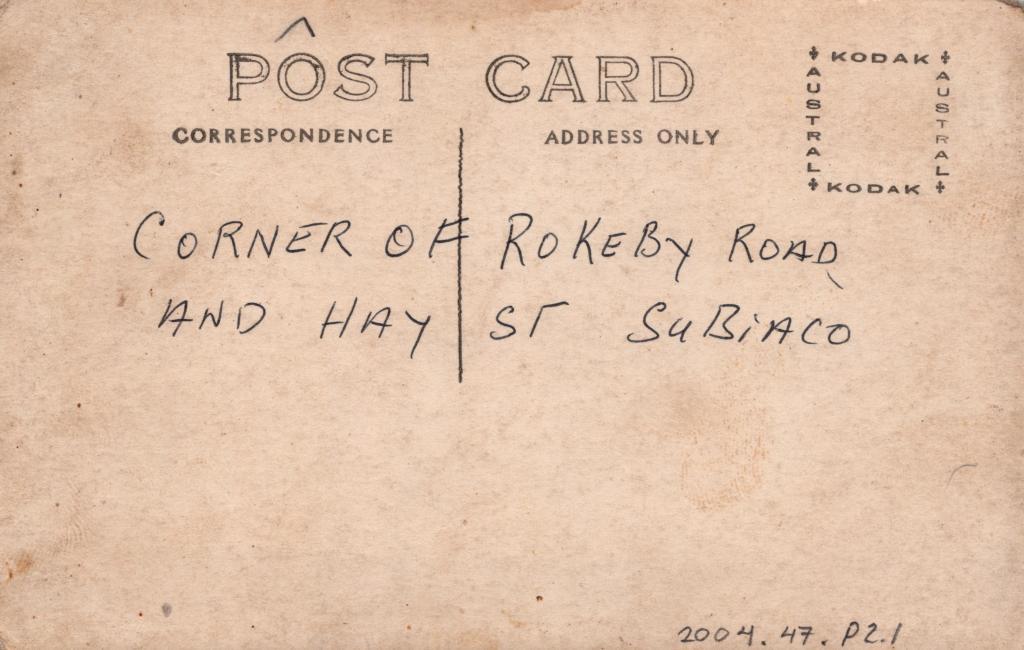 POST CARD
CORRESPONDENCE
ADDRESS ONLY
KODAK
AUSTRAL
AUSTRAL
KODAK
CORNER OF ROKEBY ROAD
AND HAY ST SUBIACO
2004.47.P2.1